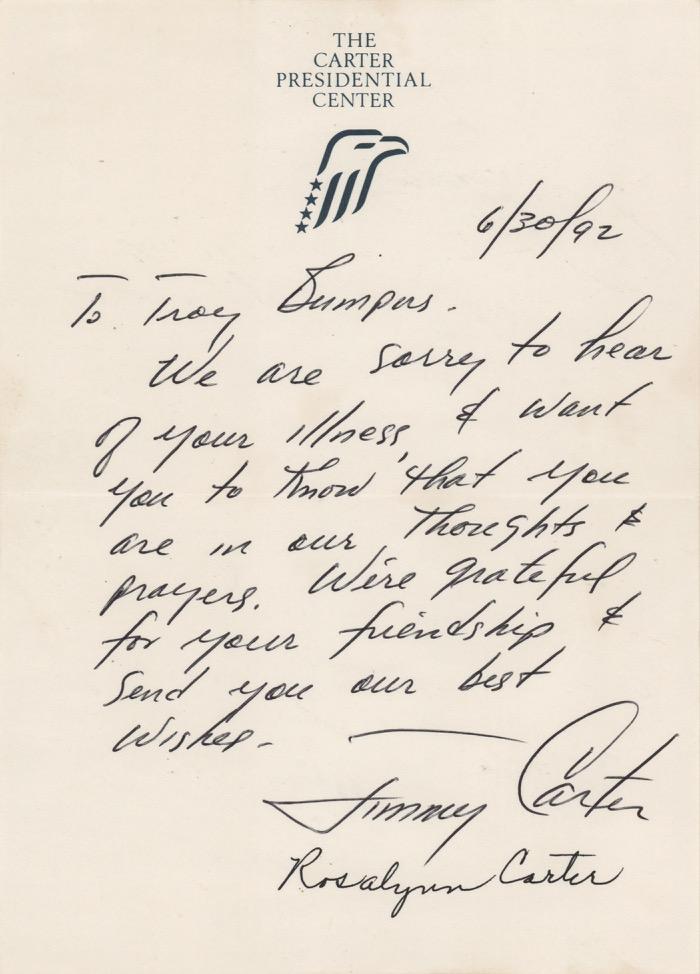 THE
CARTER
PRESIDENTIAL
CENTER
6/30/92
To Troy Bumpus.
We are sorry to hear
of your illness, & want
you to know that you
are in our thoughts &
prayers. We're grateful
for your friendship &
send you our best
wishes.
Jimmy Carter
Rosalynn Carter